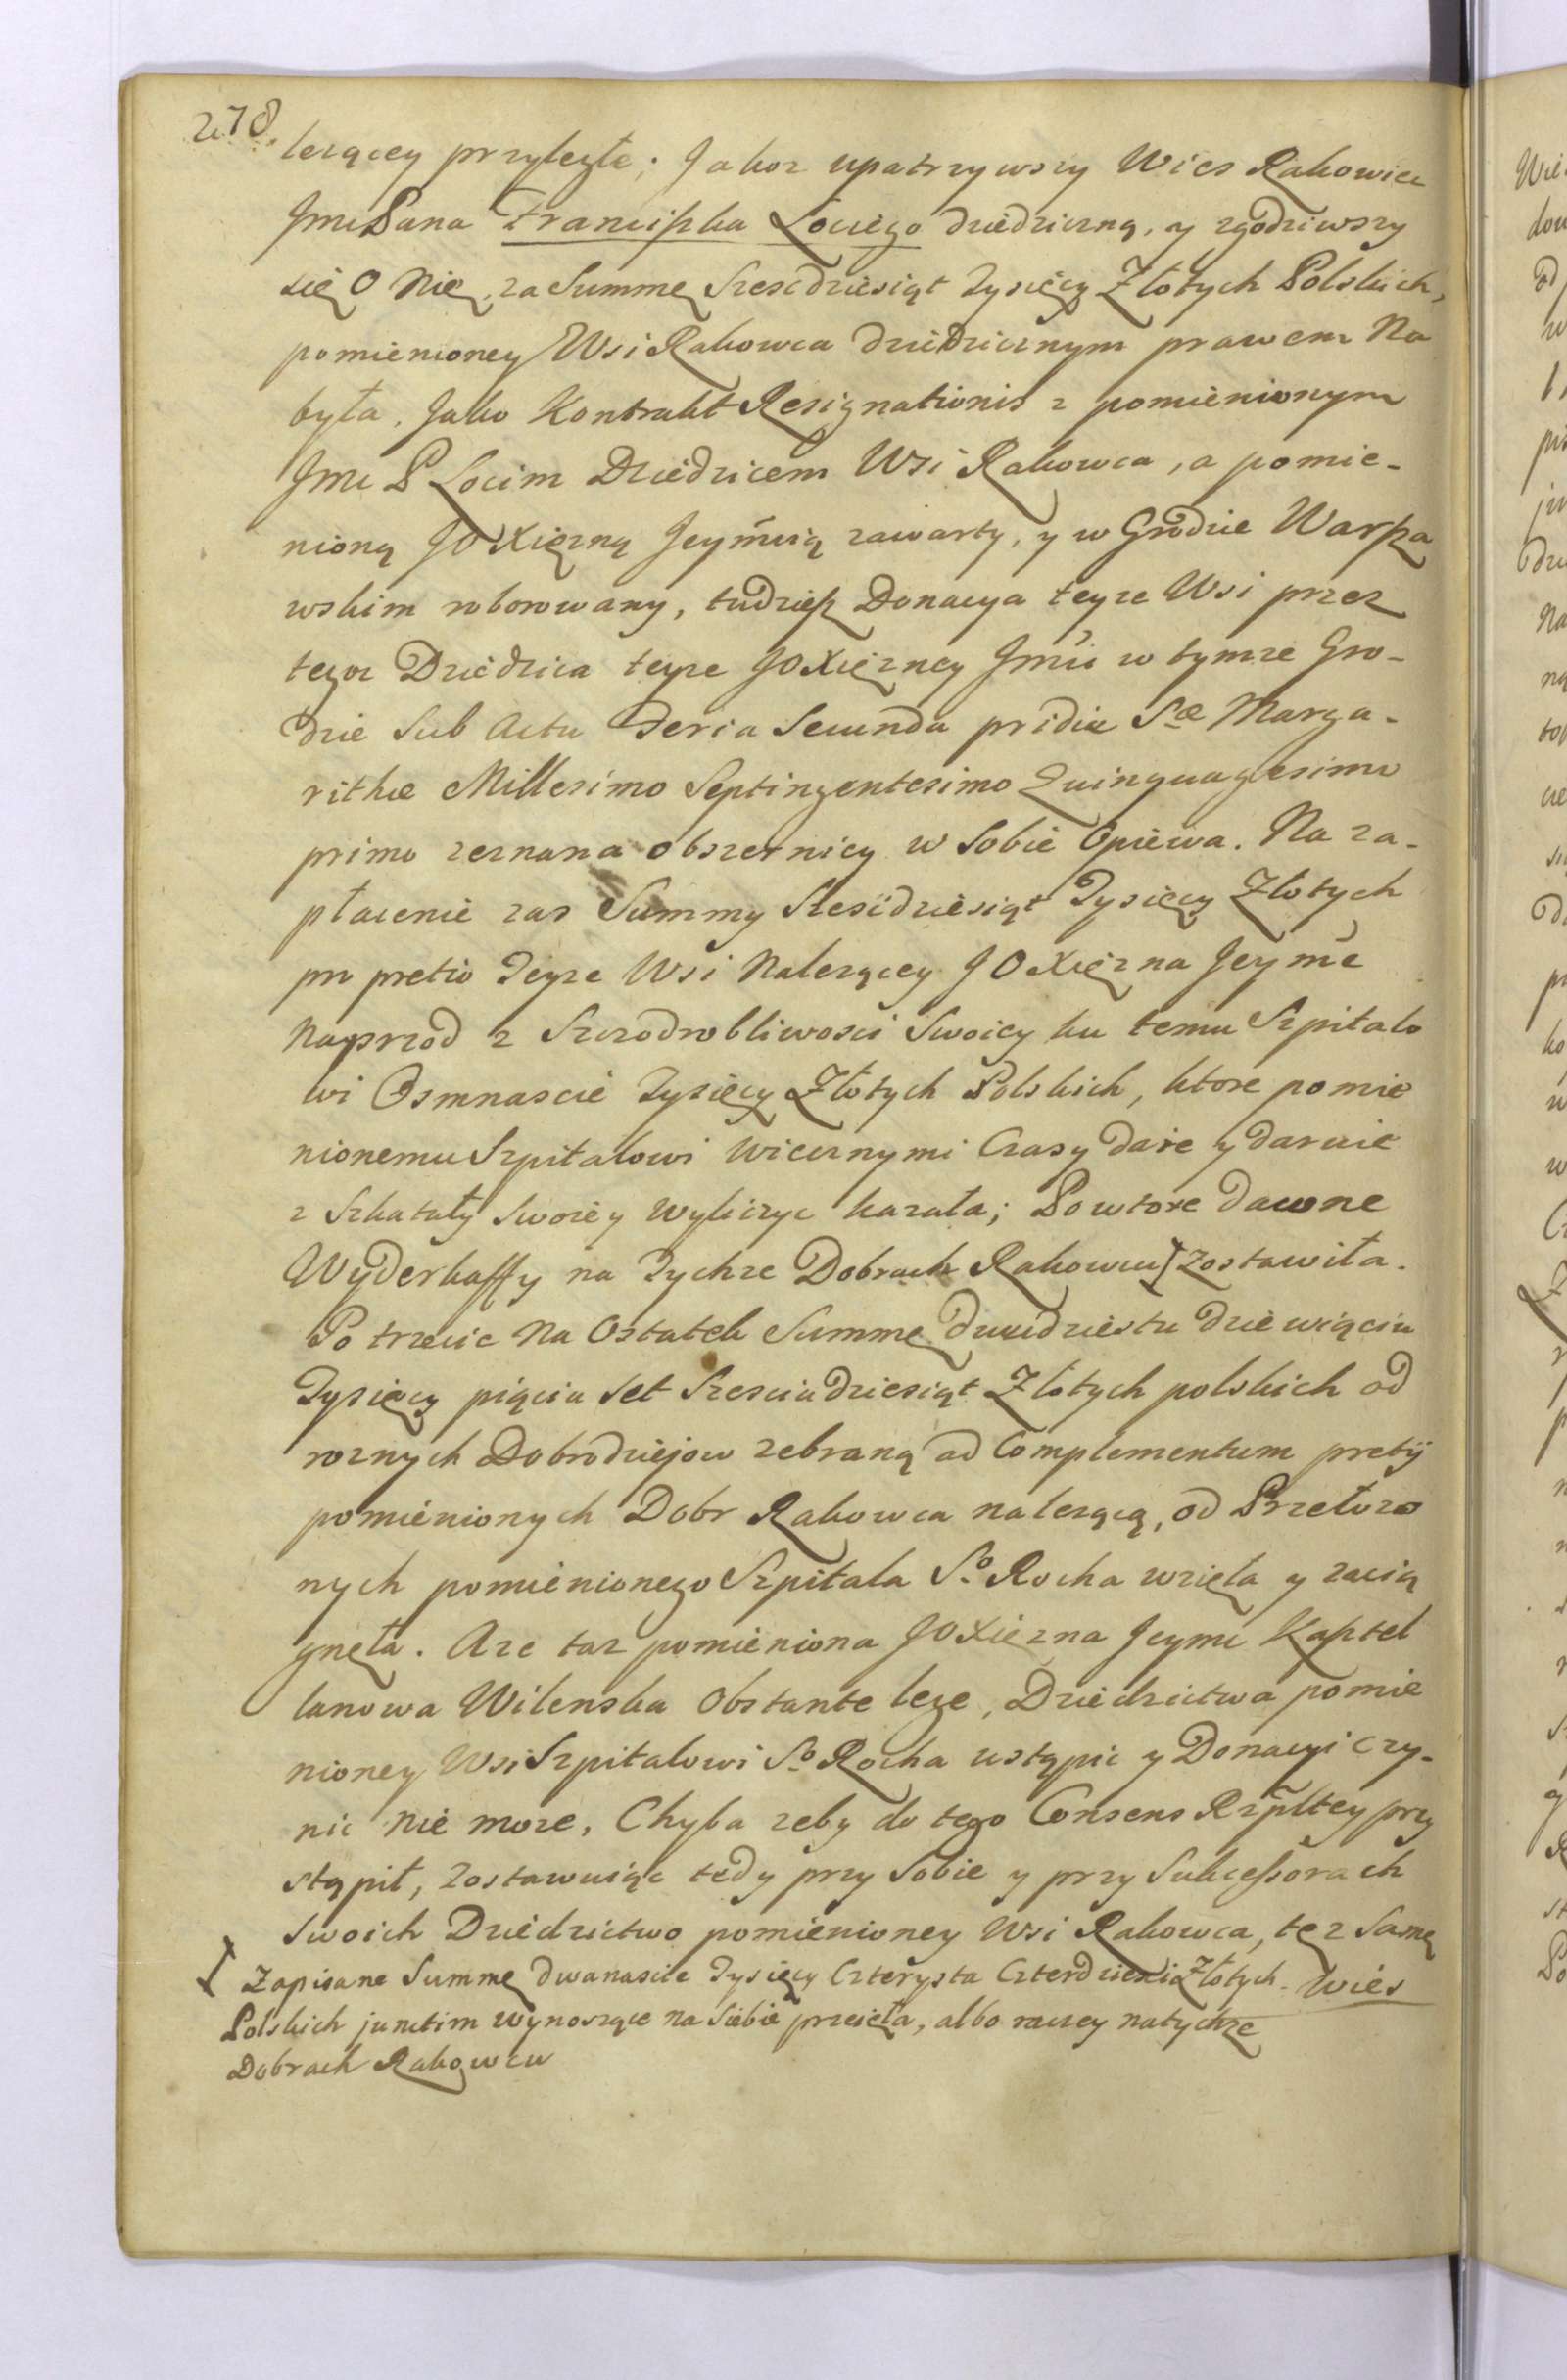 278.
lezącey przyległe; Jakoz upatrzywszy Wies Rakowiec
JmcPana Franciszka Łockiego dziedziczną, y zgodziwszy
się O Nię, za Summę Szescdziesiąt Tysięcy Złotych Polskich,
pomienioney Wsi Rakowca dziedzicznym prawem Na
była, Jako Kontrakt Resignationis z pomienionym
Jmc P Łocim Dziedzicem Wsi Rakowca, a pomie-
nioną JO Xięzną Jeymcią zawarty, y w Grodzie Warsza
wskim roborowany, tudziesz Donacya teyze Wsi przez
tegoz Dziedzica teyze JOXięzney Jmci w tymze Gro-
dzie Sub Actu Feria Secunda pridie Sæ Marga-
rithæ Millesimo Septingentesimo Quinquagesimo
primo zeznana obszerniey w Sobie Opiewa. Na za-
płacenie zas Summy Szescdziesiąt Tysięcy Złotych
pro pretio Teyze Wsi Nalezącey JO Xięzna Jeymć
Naprzod z Szczodrobliwosci Swoiey ku temu Szpitalo
wi Osmnascie Tysięcy Złotych Polskich, ktore pomie
nionemu Szpitalowi Wiecznymi Czasy daie y daruie
z Szkatuły Swoiey Wyliczyc kazała; Powtore dawne
Wyderkaffy na Tychze Dobrach Rakowcu] zostawiła.
Po trzecie Na Ostatek Summę dwudziestu dziewiąciu
Tysięcy piąciu Set Szesciudziesiąt Złotych polskich od
roznych Dobrodziejow zebraną ad Complementum pretij
pomienionych Dobr Rakowca nalezącą, od Przełozo
nych pomienionego Szpitala So Rocha wzięła y zacią
gnęła. Aze taz pomieniona JOXięzna Jeymc Kasztel
lanowa Wilenska Obstante lege, Dziedzictwa pomie
nioney Wsi Szpitalowi So Rocha ustąpic y Donacyi czy-
nic Nie moze, Chyba zeby do tego Consens Rzpltey przy
stąpił, Zostawuiąc tedy przy Sobie y przy Sukcessorach
Swoich Dziedzictwo pomienioney Wsi Rakowca, tęz Samę
Wies
[ Zapisane Summę dwanascie Tysięcy Czterysta Czterdziesci Złotych
Polskich junctim wynoszące na Siebie przeięła, albo raczey natychze
Dobrach Rakowcu